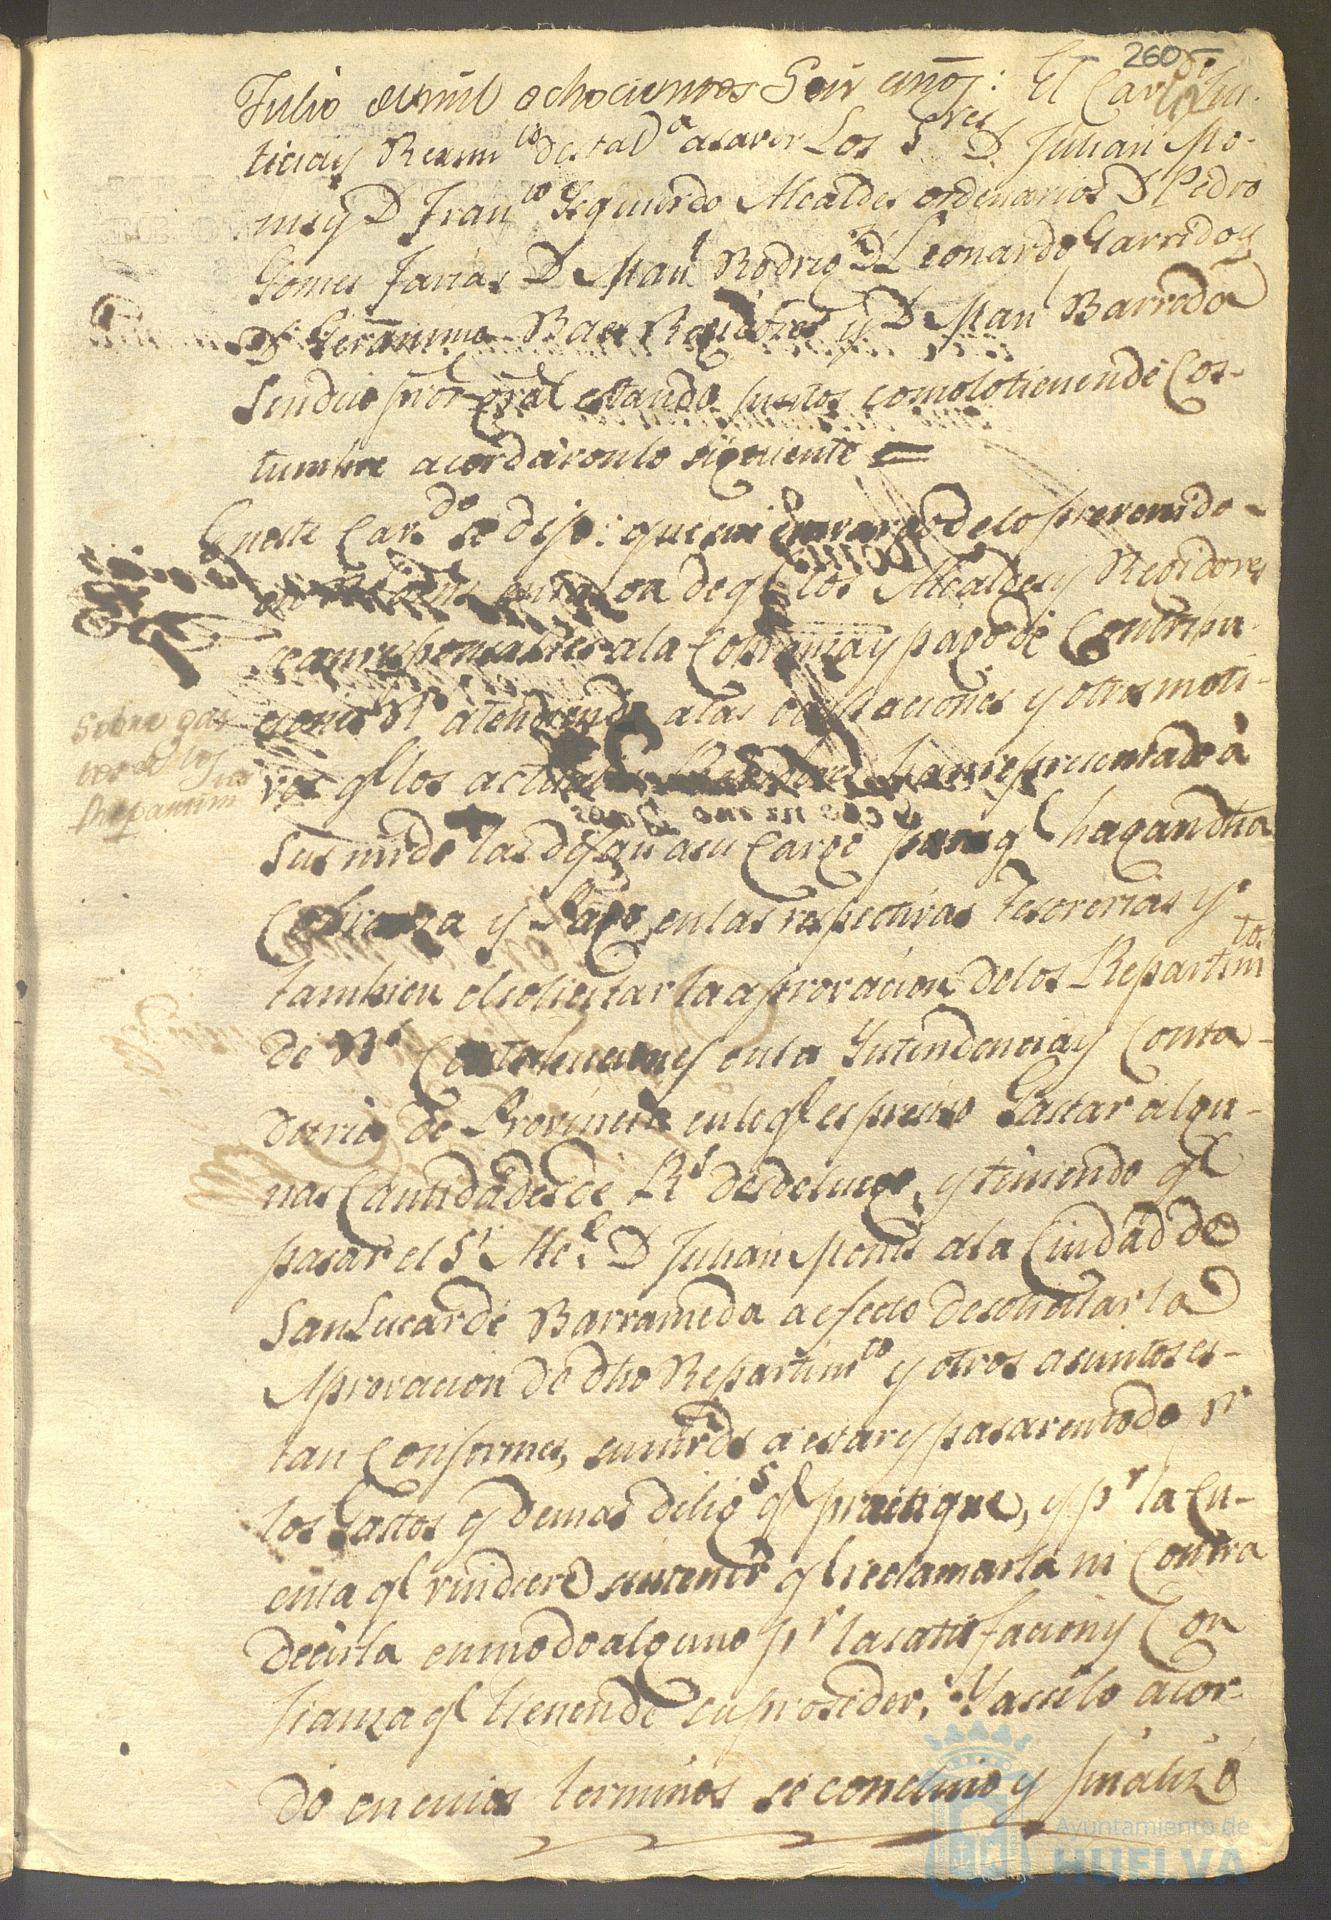 260
Julio de mil ochocientos Seis años: El Car.do Jus-
ticia y Rexim.to de esta V.a a saver Los S.res D. Julian Mo-
nis y D. Fran.co Ysquierdo Alcaldes ordenarios D. Pedro
Gomes Farias D. Man.l Rodrig.z D. Leonardo Garrido y
D. Geranimo Baes Regidores y D. Man.l Barreda
Sendico pror gral estando juntos como lo tienen de Cos-
tumbre acordaron lo siguiente =
En este Car.do se dijo: que sin embargo de lo prevenido
en razon de q.e los Alcaldes y Regidores
sean responsables a la Cobranza y pago de Contribu-
ciones R.s atendiendo a las ocupaciones y otros moti-
vos q.e los actuales han representado à
sus mrds las dejan a su Cargo para q.e hagan dha
Cobranza y Pago en las respectivas Tesorerias y
tambien el solicitar la aprovacion de los Repartim.tos
de R.s Contribuciones en la Yntendencia y Conta-
duria de Provincia en lo q.e es preciso Gastar algu-
nas Cantidades de R.s desde luego, y teniendo q.e
pasar el S.r Alc.e D. Julian Monis a la Ciudad de
San Lucar de Barrameda a efecto de solicitar la
Aprovacion de dho Repartim.to y otros asuntos es-
tan Conformes, sus mrds a estar y pasar en todo p.r
los Gastos y demas dilig.s q.e practique, y p.r la Cu-
enta q.e rindiere sin tener q.e reclamarla ni Contra
decirla en modo alguno p.r la satisfacion y Con
fianza q.e tienen de su proseder, Y asi lo acor-
dó en cuios terminos se concluio y finalizó
Sobre gas
tos de los
Repartim
Ayuntamiento de
HUELVA